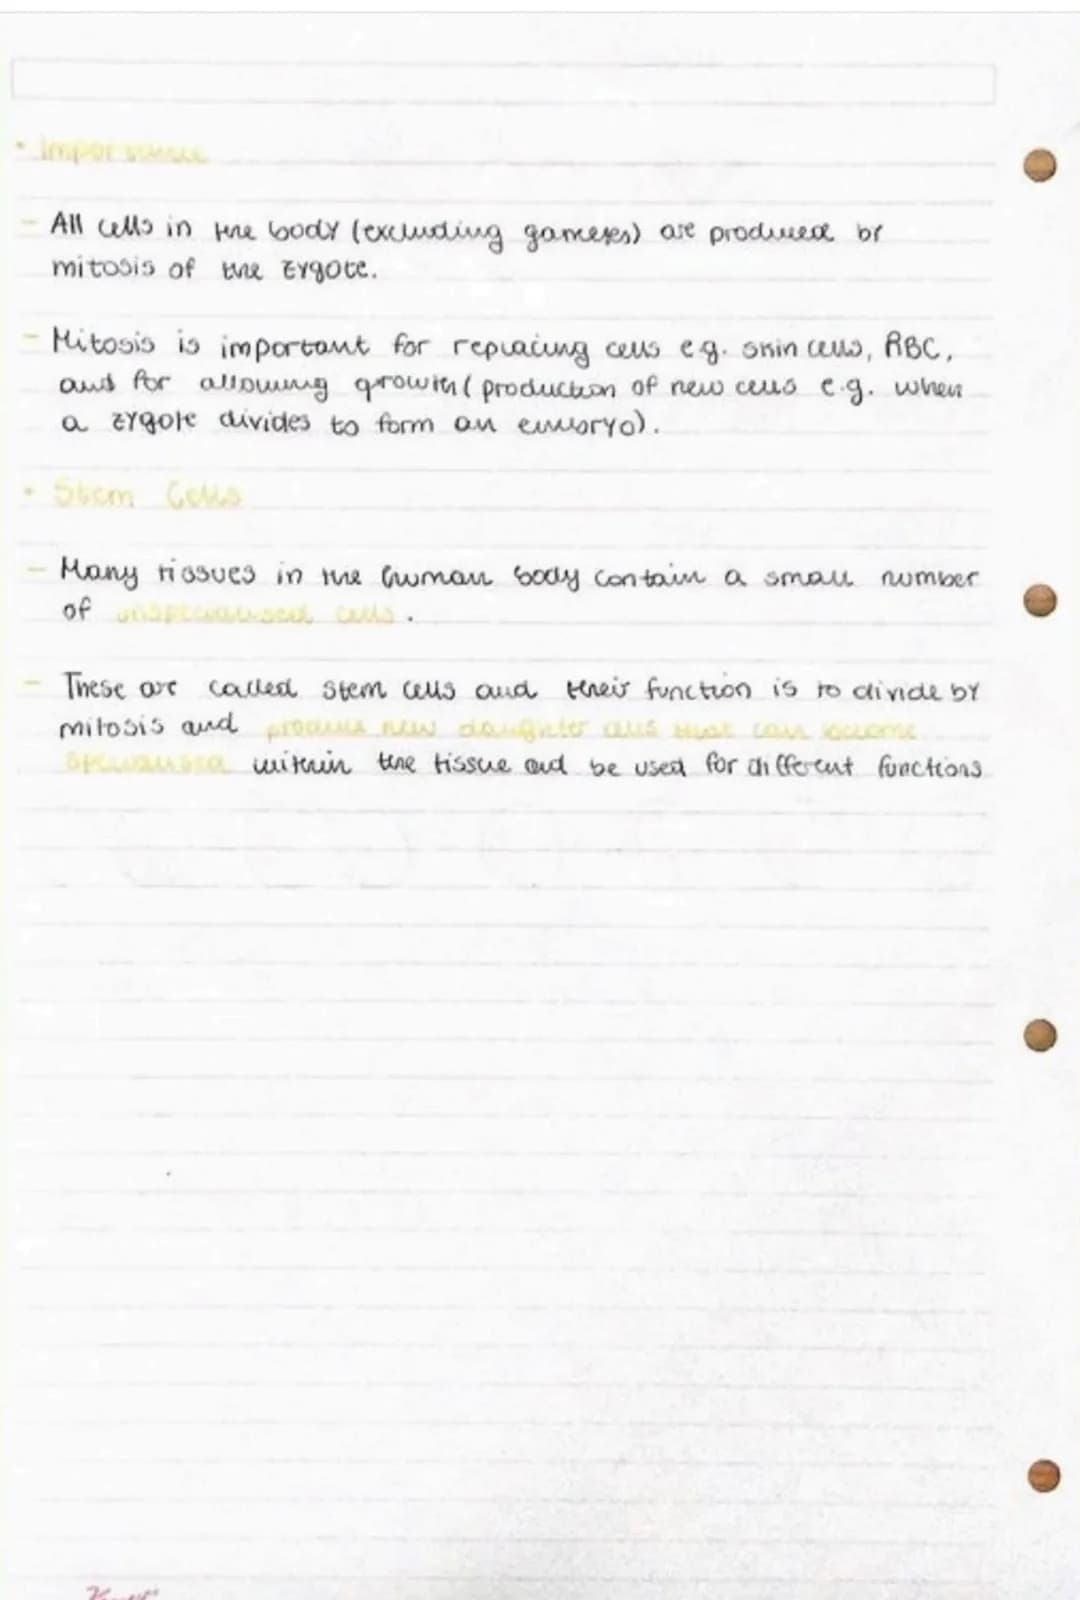 • Importance
- All cells in the body (excluding gametes) are produced by
mitosis of the zygote.
- Mitosis is important for replacing cells e.g. skin cells, RBC,
and for allowing growth (production of new cells e.g. when
a zygote divides to form an embryo).
• Stem Cells
- Many tissues in the human body contain a small number
of unspecialised cells.
- These are called stem cells and their function is to divide by
mitosis and produce new daughter cells that can become
specialised within the tissue and be used for different functions